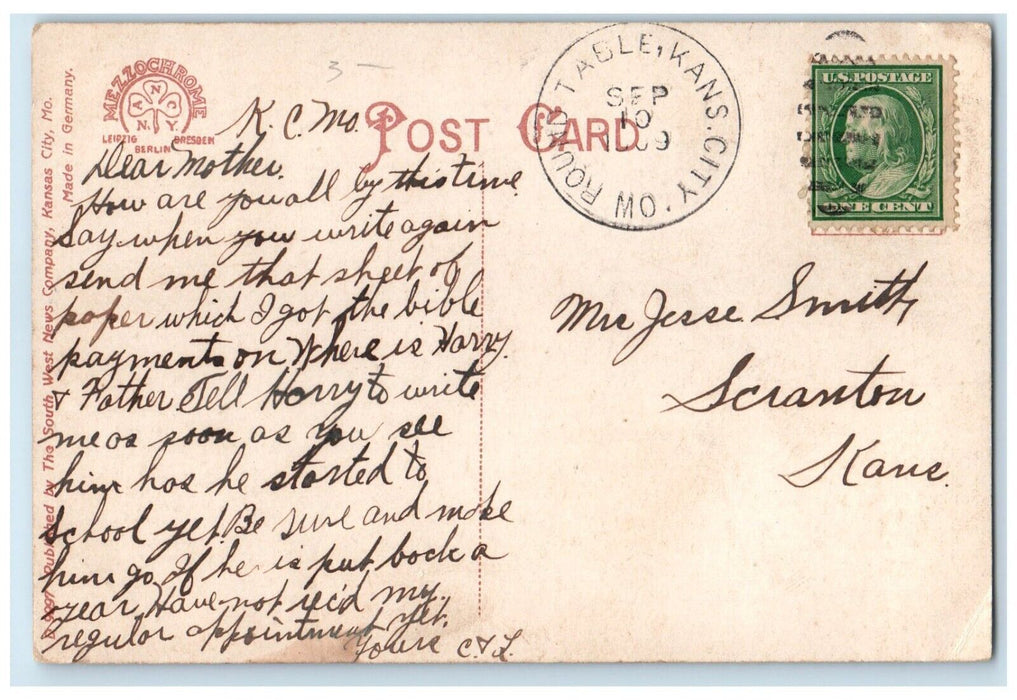 MEZZOCHROME
ANC
N.Y.
LEIPZIG DRESDEN
BERLIN
POST CARD
ROUND TABLE, KANS. CITY, MO.
SEP
10
1909
U.S. POSTAGE
ONE CENT
K. C. Mo.
Dear Mother.
How are you all by this time
Say when you write again
send me that sheet of
paper which I got the bible
payments on Where is Harry
& Father Tell Harry to write
me as soon as you see
him has he started to
school yet. Be sure and make
him go If he is put back a
year Have not rec'd my
regular appointment yet.
Yours C & L
Mrs Jesse Smith
Scranton
Kans.
Published by The South West News Company, Kansas City, Mo.
Made in Germany.